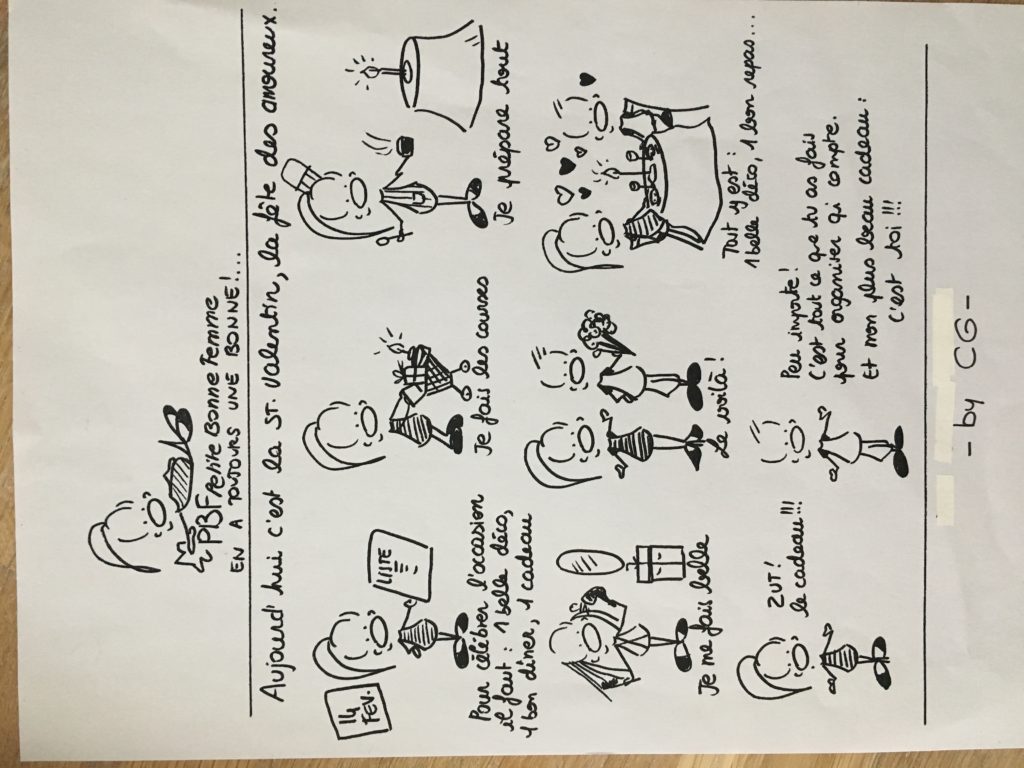 PBF Petite Bonne Femme
EN A TOUJOURS UNE BONNE!...
Aujourd'hui c'est la ST. Valentin, la fête des amoureux.
14
FEV.
LISTE
Pour célébrer l'occasion
il faut : 1 belle déco,
1 bon dîner, 1 cadeau
Je fais les courses
Je prépare tout
Je me fais belle
Le voilà!
Tout y est :
1 belle déco, 1 bon repas...
ZUT!
le cadeau!!!
Peu importe!
C'est tout ce que tu as fais
pour organiser qui compte.
Et mon plus beau cadeau :
c'est toi!!!
- by CG -